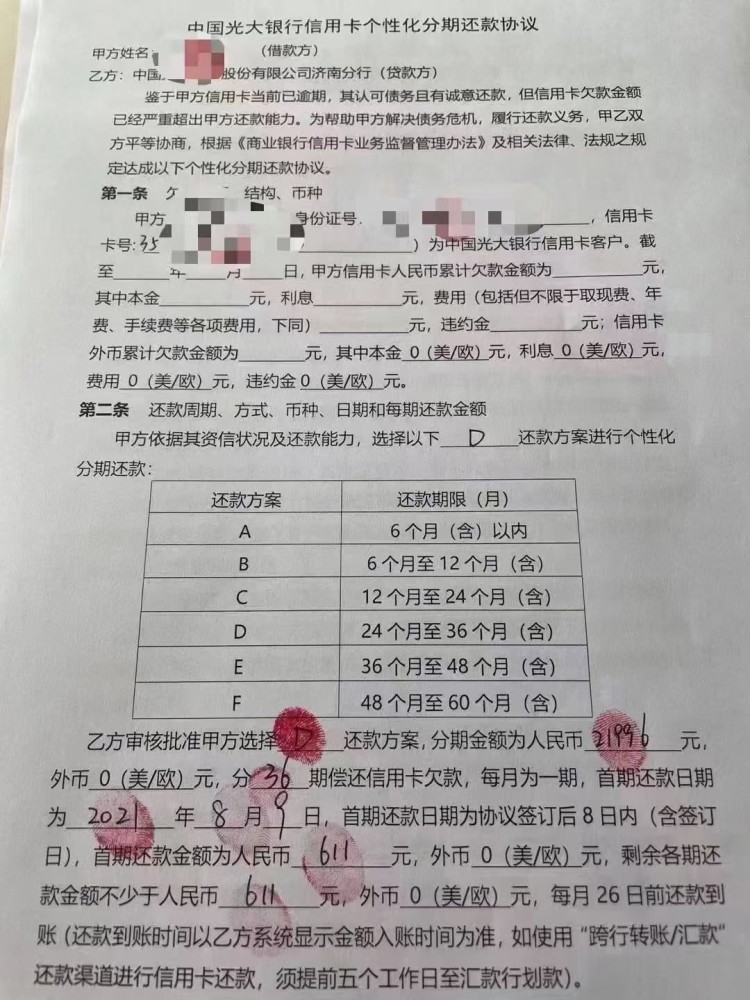 中国光大银行信用卡个性化分期还款协议
甲方姓名: （借款方）
乙方：中国 股份有限公司济南分行（贷款方）
鉴于甲方信用卡当前已逾期，其认可债务且有诚意还款，但信用卡欠款金额
已经严重超出甲方还款能力。为帮助甲方解决债务危机，履行还款义务，甲乙双
方平等协商，根据《商业银行信用卡业务监督管理办法》及相关法律、法规之规
定达成以下个性化分期还款协议。
第一条 结构、币种
甲方 身份证号 ，信用卡
卡号: ）为中国光大银行信用卡客户。截
至 年 月 日，甲方信用卡人民币累计欠款金额为 元，
其中本金 元，利息 元，费用（包括但不限于取现费、年
费、手续费等各项费用，下同） 元，违约金 元；信用卡
外币累计欠款金额为 元，其中本金 0（美/欧）元，利息 0（美/欧）元，
费用 0（美/欧）元，违约金 0（美/欧）元。
第二条 还款周期、方式、币种、日期和每期还款金额
甲方依据其资信状况及还款能力，选择以下 D 还款方案进行个性化
分期还款：
还款方案 还款期限（月）
A 6个月（含）以内
B 6个月至12个月（含）
C 12个月至24个月（含）
D 24个月至36个月（含）
E 36个月至48个月（含）
F 48个月至60个月（含）
乙方审核批准甲方选择 D 还款方案，分期金额为人民币 21996 元，
外币 0（美/欧）元，分 36 期偿还信用卡欠款，每月为一期，首期还款日期
为 2021 年 8 月 9 日，首期还款日期为协议签订后8日内（含签订
日），首期还款金额为人民币 611 元，外币 0（美/欧）元，剩余各期还
款金额不少于人民币 611 元，外币 0（美/欧）元，每月26日前还款到
账（还款到账时间以乙方系统显示金额入账时间为准，如使用“跨行转账/汇款”
还款渠道进行信用卡还款，须提前五个工作日至汇款行划款）。